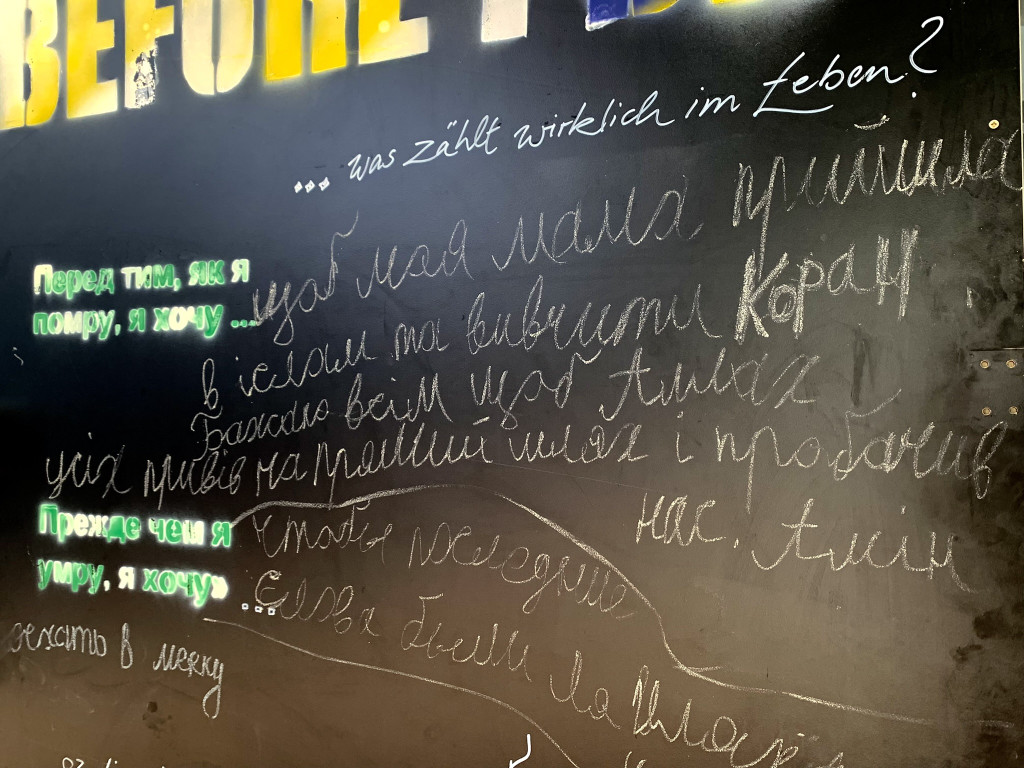 BEFORE I
... was zählt wirklich im Leben?
Перед тим, як я
помру, я хочу ...
щоб моя мама прийшла
в іслам та вивчити Коран
Бажаю всім щоб Аллах
усіх привів на прямий шлях і пробачив
нас. Амін
Прежде чем я
умру, я хочу»
...
чтобы последние
слова были Ла
ехать в мекку